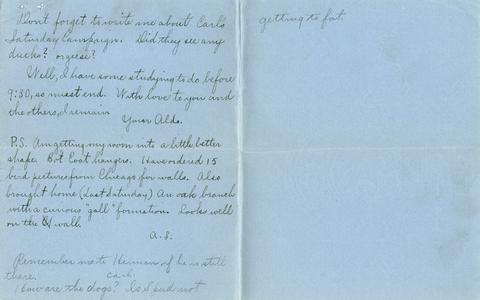 Don't forget to write me about Carl's
Saturday Campaign. Did they see any
ducks? or geese?
Well, I have some studying to do before
9:30, so must end. With love to you and
the others, I remain
Your Aldo.
P.S. Am getting my room into a little better
shape. Bot Coat hangers. Have ordered 15
bird pictures from Chicago for walls. Also
brought home (Last Saturday) An oak branch
with a curious "gall" formation. Looks well
on the wall.
A.L.
Remember me to Herman if he is still
there. Carl.
How are the dogs? Is Spud not
getting to fat.